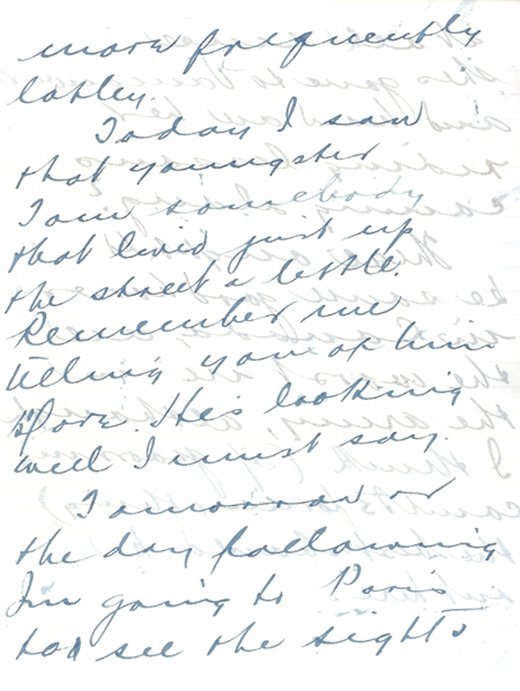 more frequently
lately.
Today I saw
that youngster
Tom somebody
that lived just up
the street a little.
Remember me
telling you of him
before. He's looking
well I must say.
Tomorrow or
the day following
I'm going to Paris
to see the sights